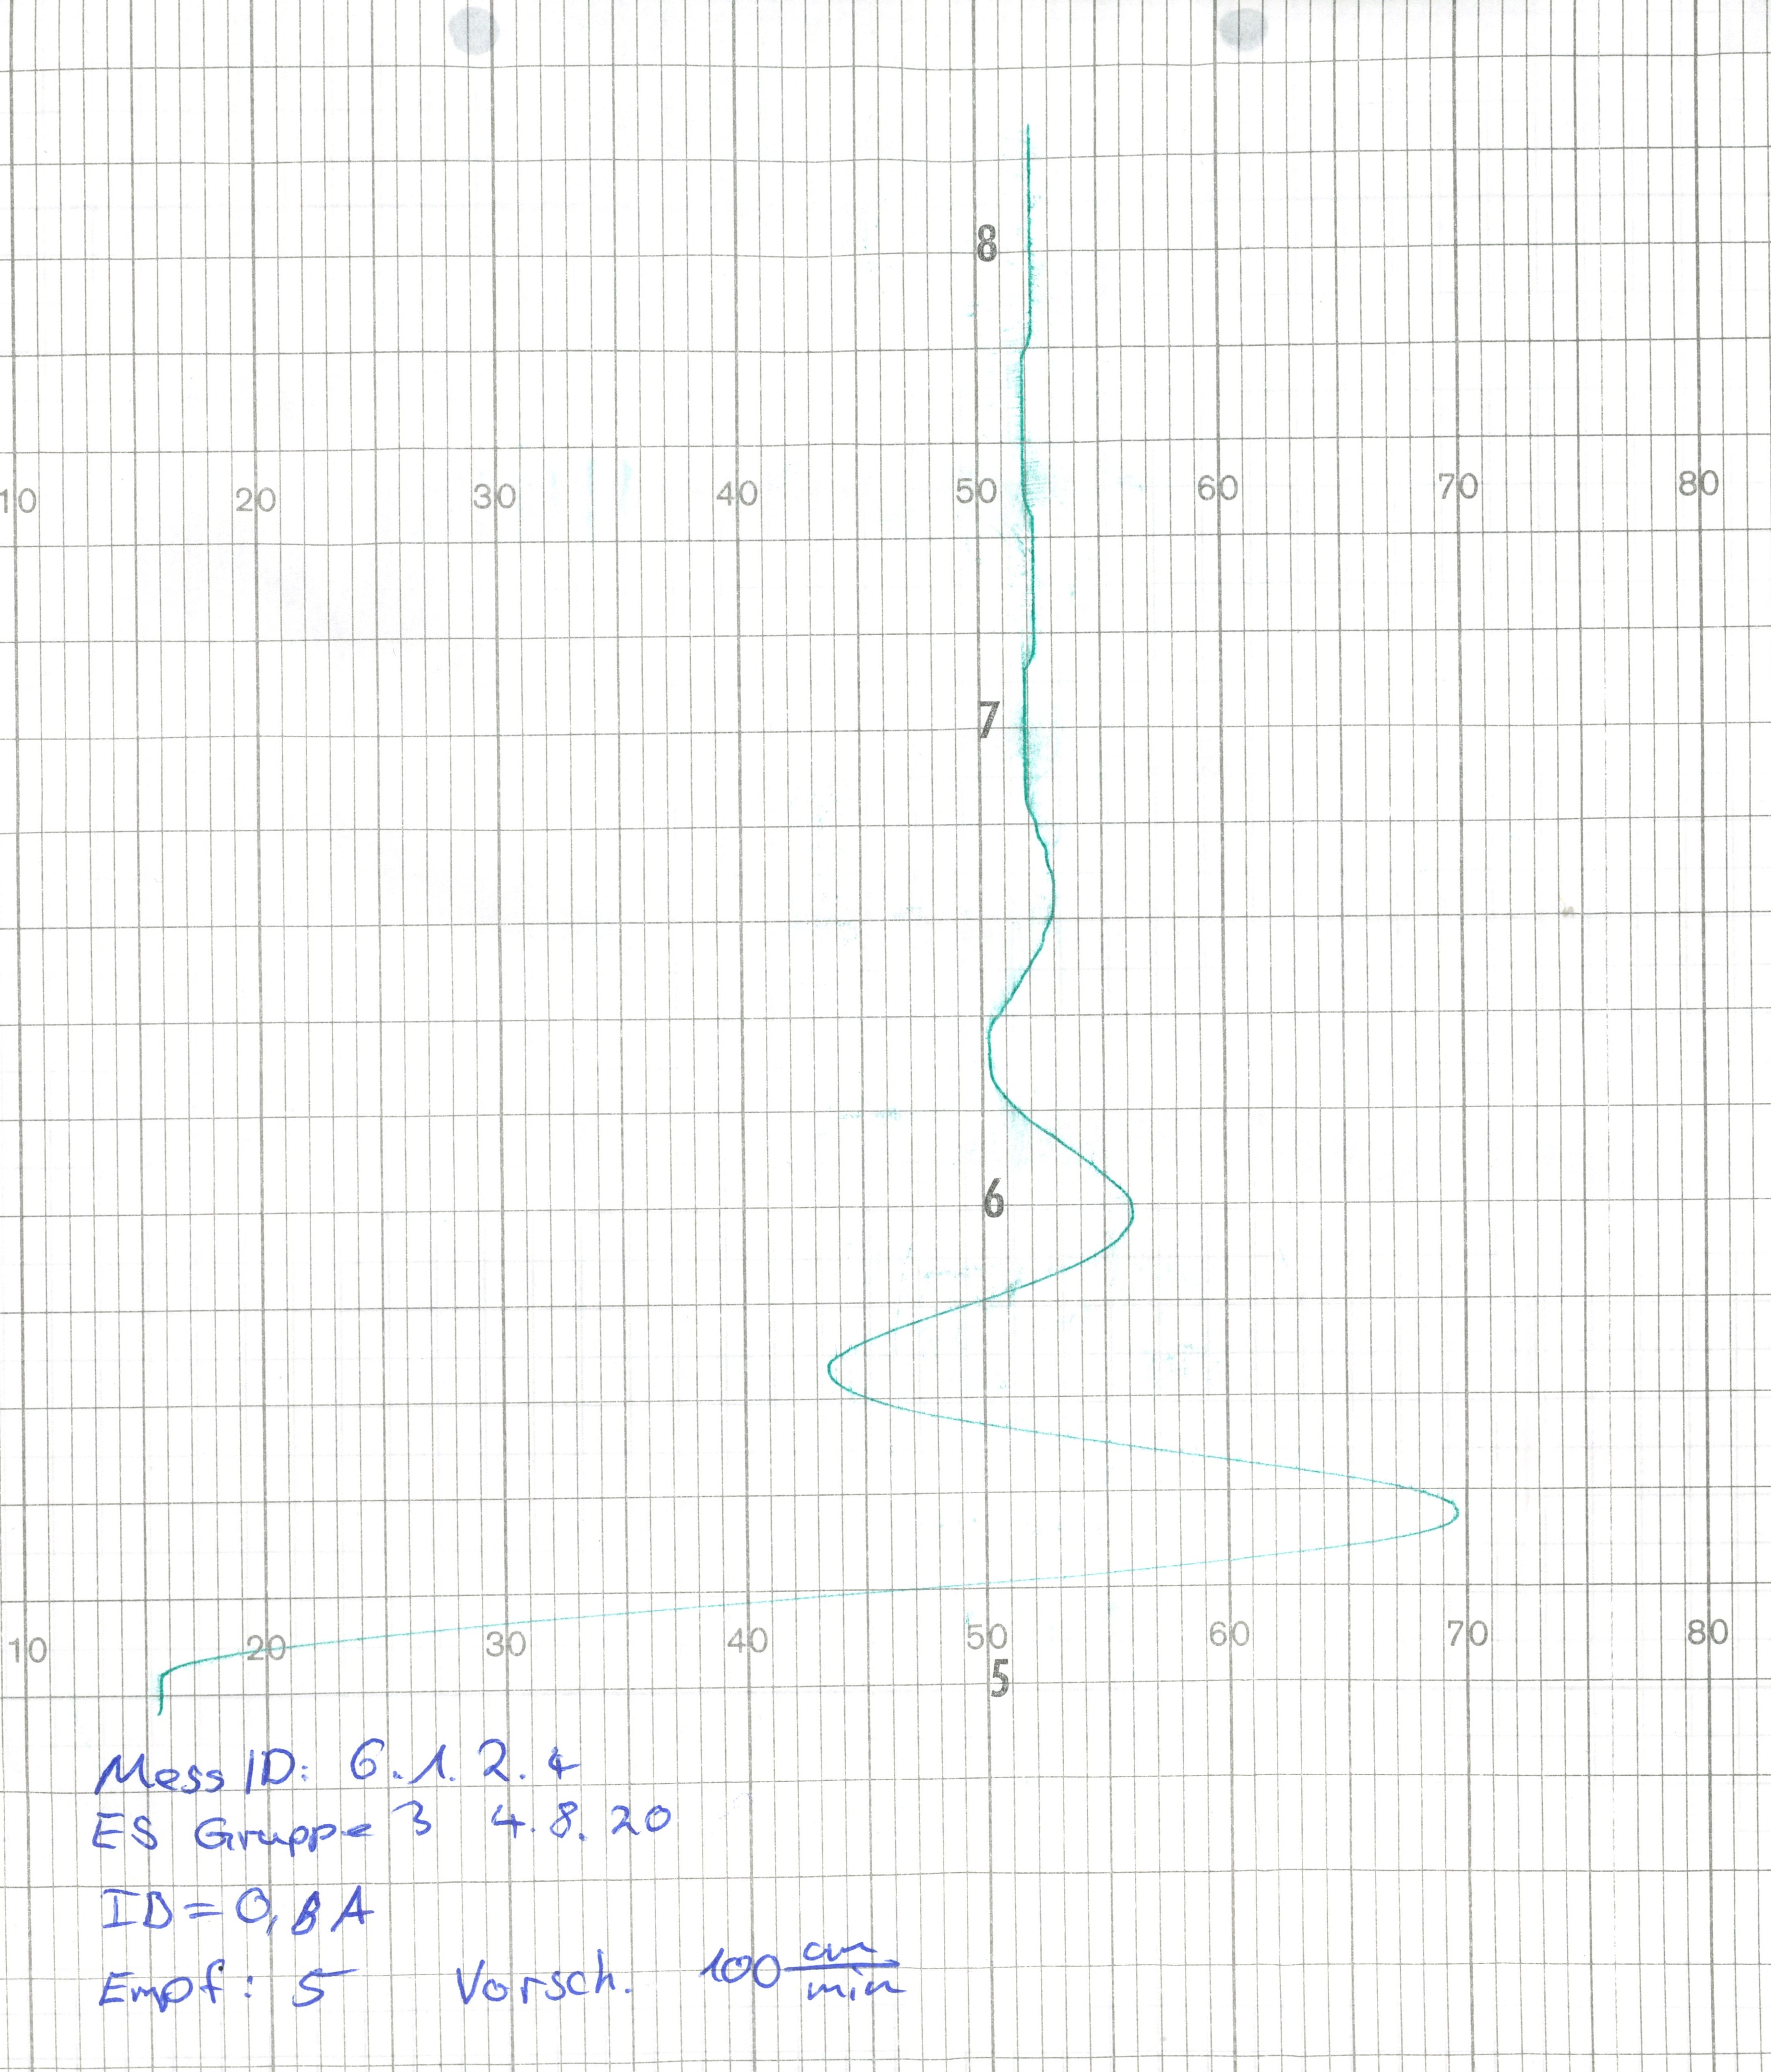 8
10 20 30 40 50 60 70 80
7
6
10 20 30 40 50 60 70 80
5
Mess ID: 6.1.2.4
ES Gruppe 3 4.8.20
ID = A
Empf: 5 Vorsch. 100 cm/min